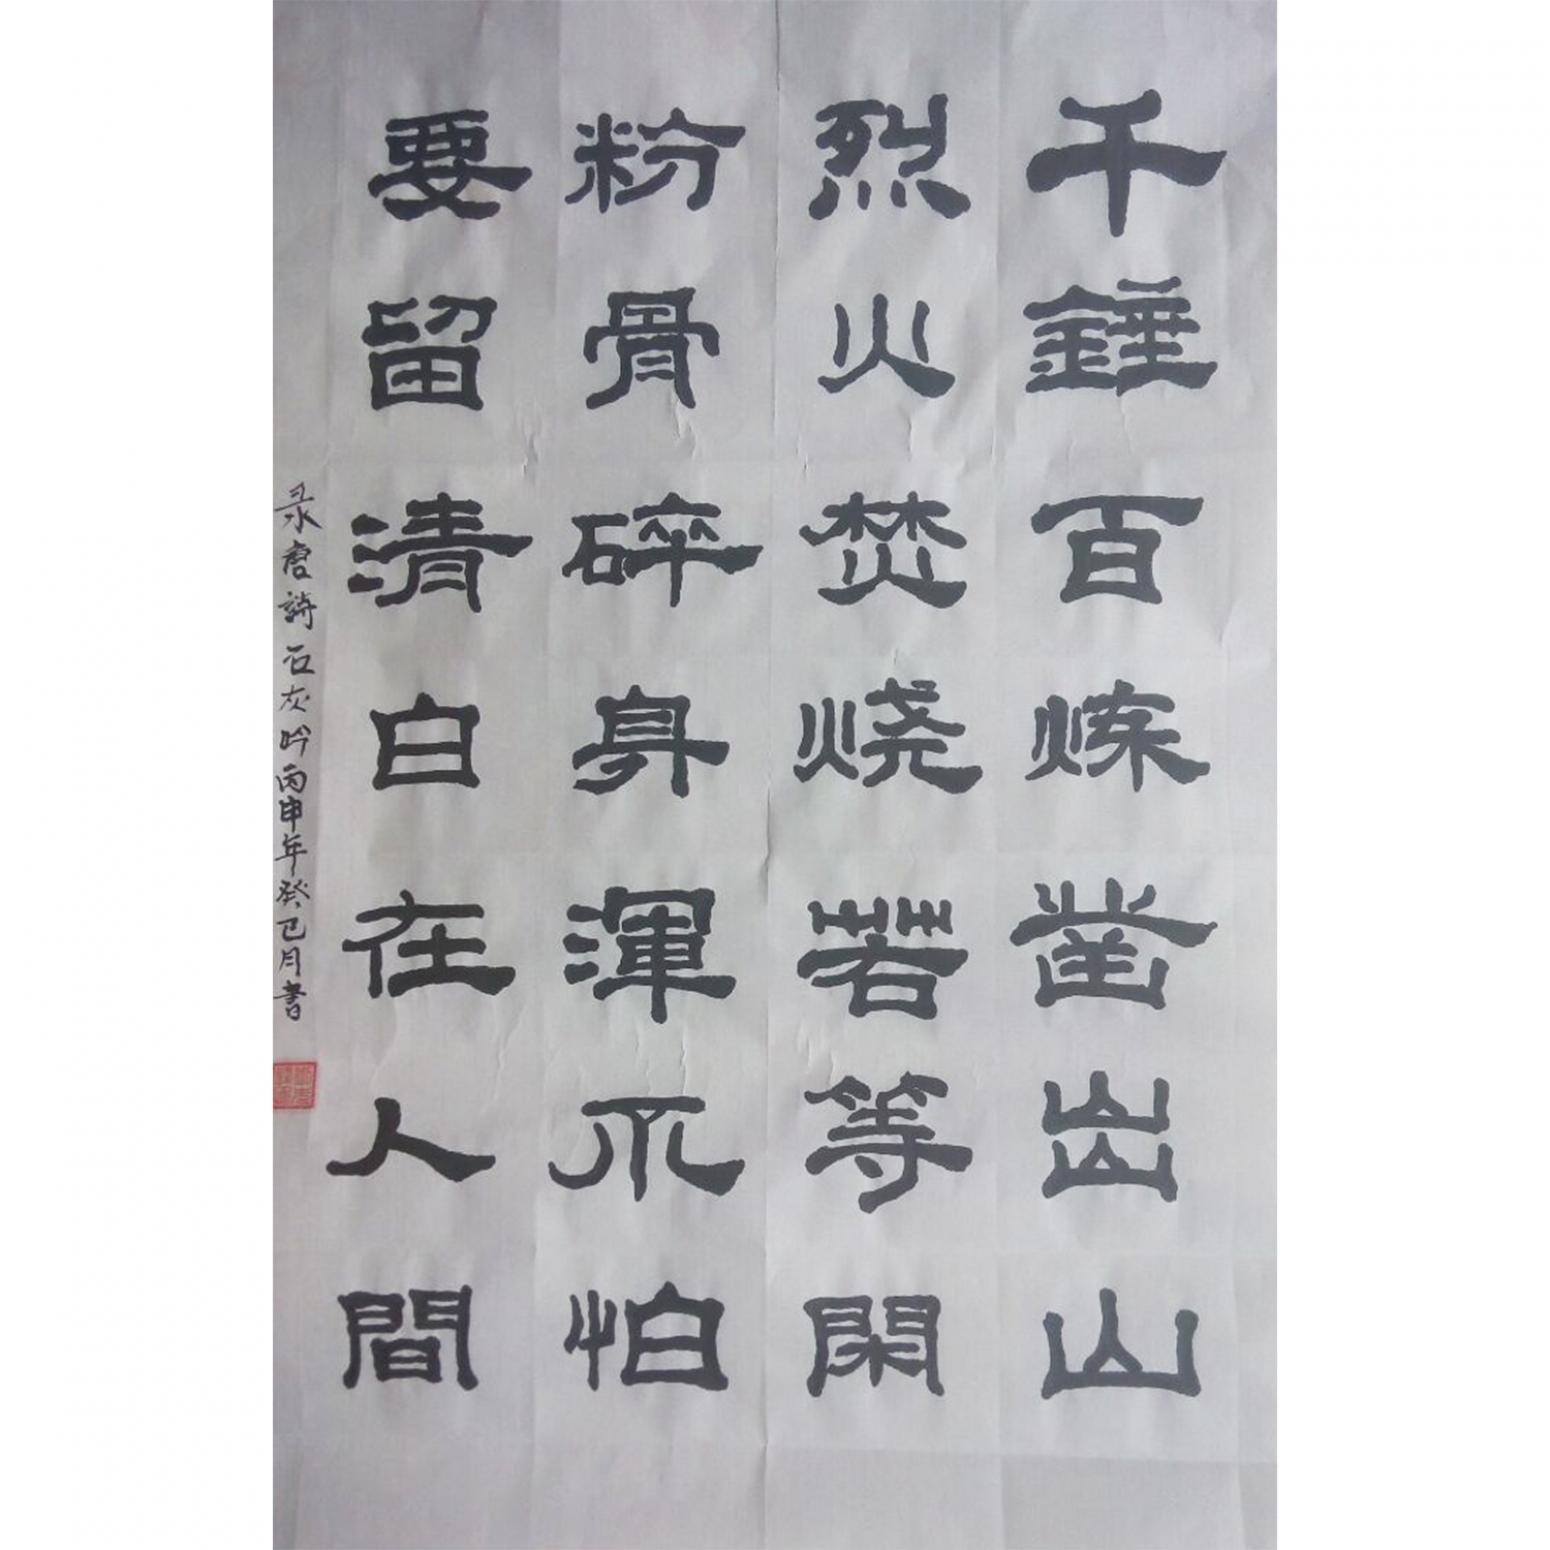 千錘百炼凿出山
烈火焚烧若等閑
粉骨碎身渾不怕
要留清白在人間
录唐詩石灰吟丙申年癸巳月書